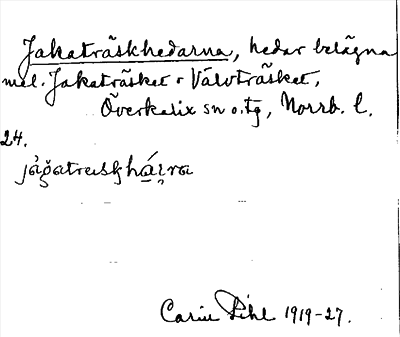 Jakaträskhedarna, hedar belägna
mel. Jakaträsket o Välvträsket,
Överkalix sn o. tg, Norrb. l.
24.
Carin Pihl 1919-27.